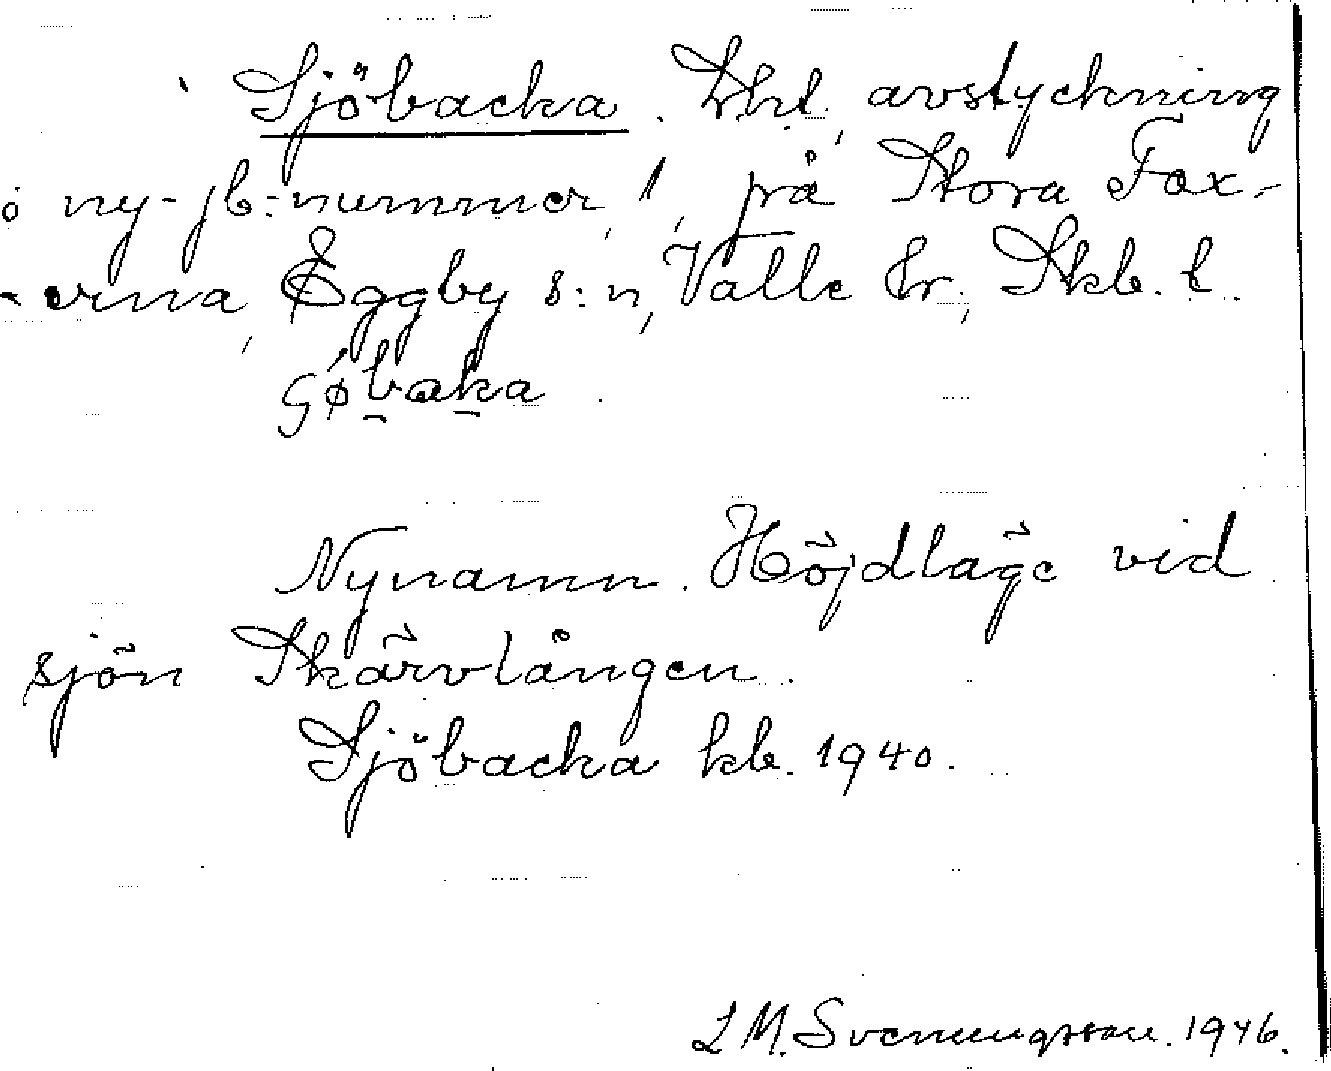 Sjöbacka. Lht, avstyckning
ny-jb:nummer, 1, på Stora Fox-
erna, Eggby s:n, Valle hr, Skb. l.
Nynamn. Höjdläge vid
sjön Skärvlången.
Sjöbacka kb. 1940.
L M. Svenungsson. 1946.